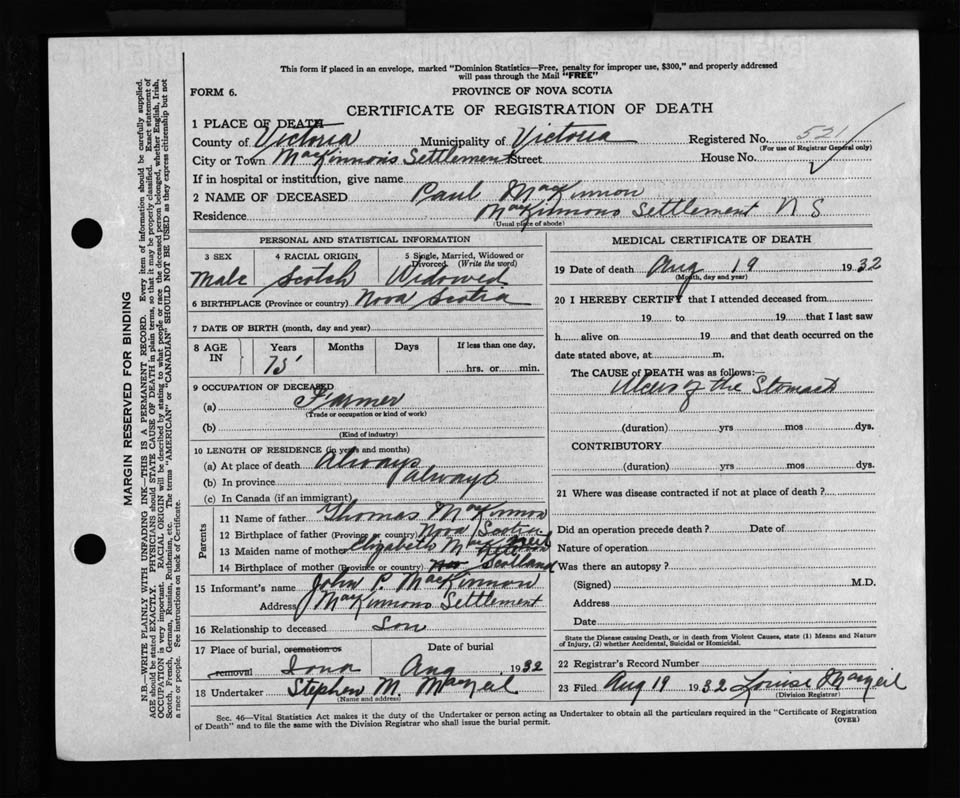 This form if placed in an envelope, marked "Dominion Statistics—Free, penalty for improper use, $300," and properly addressed
will pass through the Mail "FREE"
FORM 6.
PROVINCE OF NOVA SCOTIA
CERTIFICATE OF REGISTRATION OF DEATH
1 PLACE OF DEATH
County of Victoria Municipality of Victoria Registered No. 521
(For use of Registrar General only)
City or Town MacKinnons Settlement Street House No.
If in hospital or institution, give name
2 NAME OF DECEASED Paul MacKinnon
Residence MacKinnons Settlement N S
(Usual place of abode)
PERSONAL AND STATISTICAL INFORMATION
3 SEX 4 RACIAL ORIGIN 5 Single, Married, Widowed or Divorced. (Write the word)
Male Scotch Widowed
6 BIRTHPLACE (Province or country) Nova Scotia
7 DATE OF BIRTH (month, day and year)
8 AGE IN Years Months Days If less than one day,
75 hrs. or min.
9 OCCUPATION OF DECEASED
(a) Farmer
(Trade or occupation or kind of work)
(b)
(Kind of industry)
10 LENGTH OF RESIDENCE (in years and months)
(a) At place of death Always
(b) In province always
(c) In Canada (if an immigrant)
Parents
11 Name of father Thomas MacKinnon
12 Birthplace of father (Province or country) Nova Scotia
13 Maiden name of mother Elizabeth Mac
14 Birthplace of mother (Province or country) Scotland
15 Informant's name John P. MacKinnon
Address MacKinnons Settlement
16 Relationship to deceased Son
17 Place of burial, cremation or removal Date of burial
Iona Aug 1932
18 Undertaker Stephen M. MacNeil
(Name and address)
MEDICAL CERTIFICATE OF DEATH
19 Date of death Aug 19 1932
(Month, day and year)
20 I HEREBY CERTIFY that I attended deceased from
19 to 19 that I last saw
h alive on 19 and that death occurred on the
date stated above, at m.
The CAUSE of DEATH was as follows:—
Ulcer of the Stomach
(duration) yrs mos dys.
CONTRIBUTORY
(duration) yrs mos dys.
21 Where was disease contracted if not at place of death?
Did an operation precede death? Date of
Nature of operation
Was there an autopsy?
(Signed) M.D.
Address
Date
State the Disease causing Death, or in death from Violent Causes, state (1) Means and Nature
of Injury, (2) whether Accidental, Suicidal or Homicidal.
22 Registrar's Record Number
23 Filed Aug 19 1932 Louise MacNeil
(Division Registrar)
Sec. 46—Vital Statistics Act makes it the duty of the Undertaker or person acting as Undertaker to obtain all the particulars required in the "Certificate of Registration
of Death" and to file the same with the Division Registrar who shall issue the burial permit.
(OVER)
MARGIN RESERVED FOR BINDING
N.B.—WRITE PLAINLY WITH UNFADING INK—THIS IS A PERMANENT RECORD. Every item of information should be carefully supplied.
AGE should be stated EXACTLY. PHYSICIANS should STATE CAUSE OF DEATH in plain terms, so that it may be properly classified. Exact statement of
OCCUPATION is very important. RACIAL ORIGIN will be described by stating to what people or race the deceased person belonged, whether English, Irish,
Scotch, French, German, Russian, Ruthenian, etc. The terms "AMERICAN" or "CANADIAN" SHOULD NOT BE USED as they express citizenship but not
a race or people. See instructions on back of Certificate.